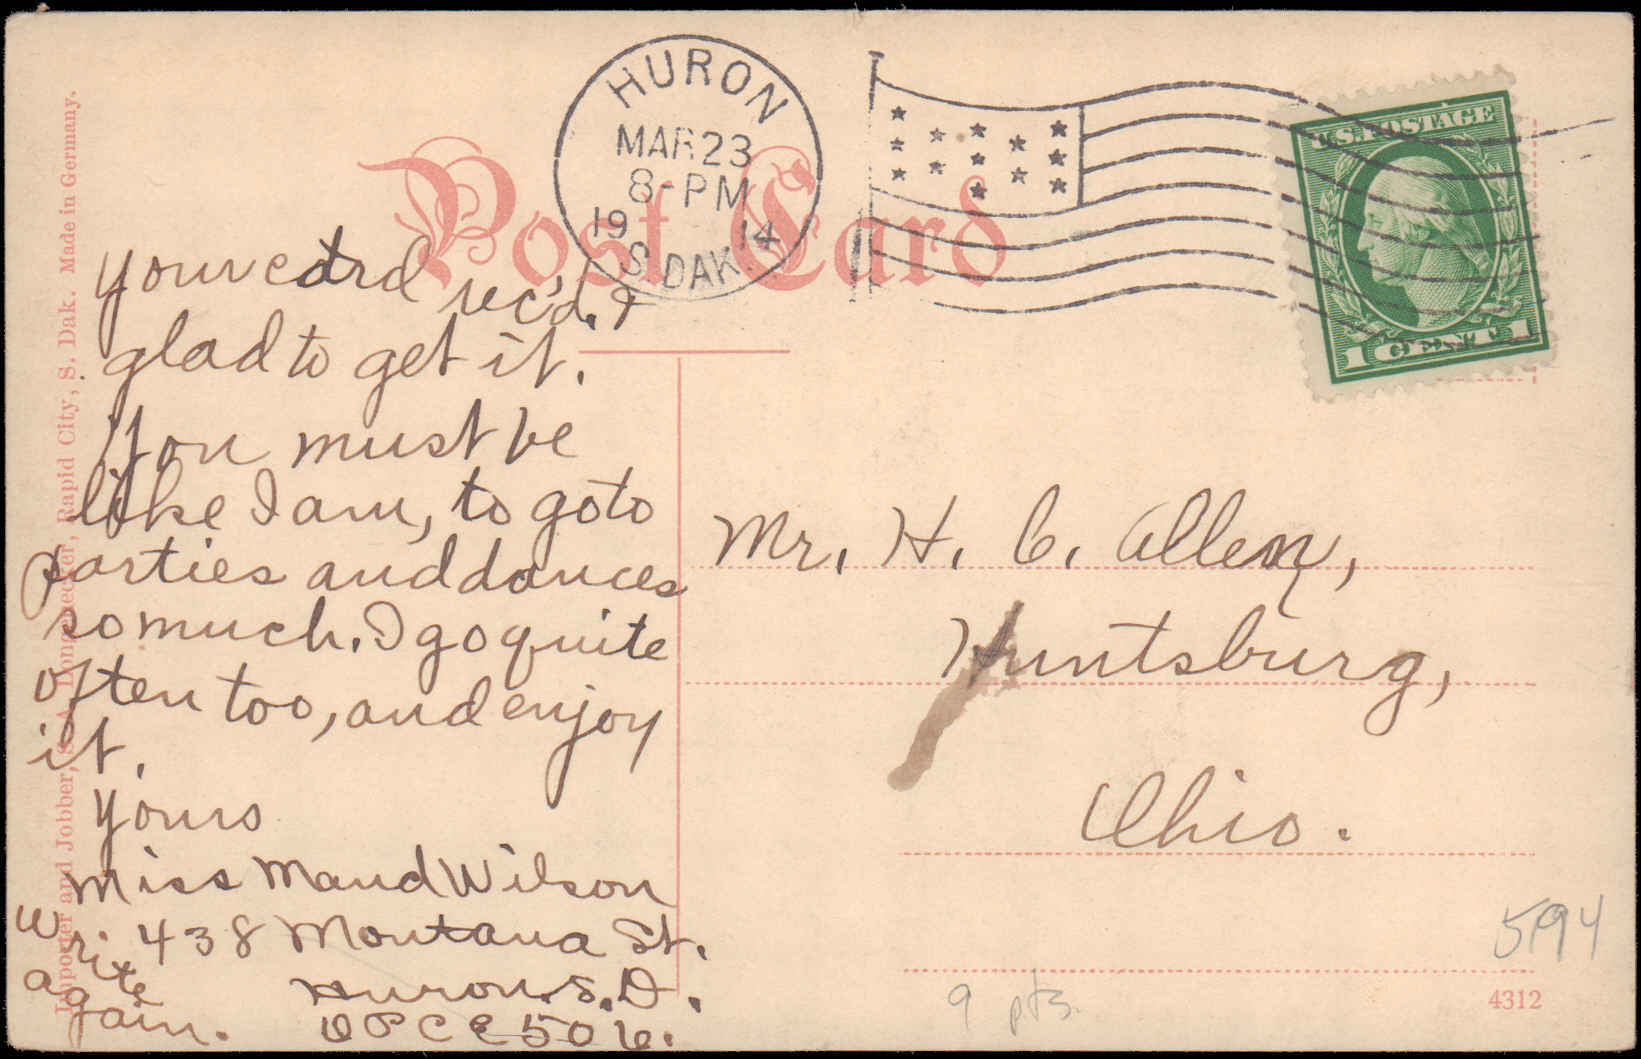 HURON
MAR 23
8-PM
19 14
S. DAK.
Post Card
U.S. POSTAGE
1 CENT 1
Your card rec'd. &
glad to get it.
You must be
like I am, to go to
parties and dances
so much. I go quite
often too, and enjoy
it.
Yours
Miss Maud Wilson
438 Montana St.
Huron. S. D.
Write
again.
Mr. H. C. Allen,
Huntsburg,
Ohio.
5194
9 pts.
4312
Importer and Jobber, Rapid City, S. Dak. Made in Germany.